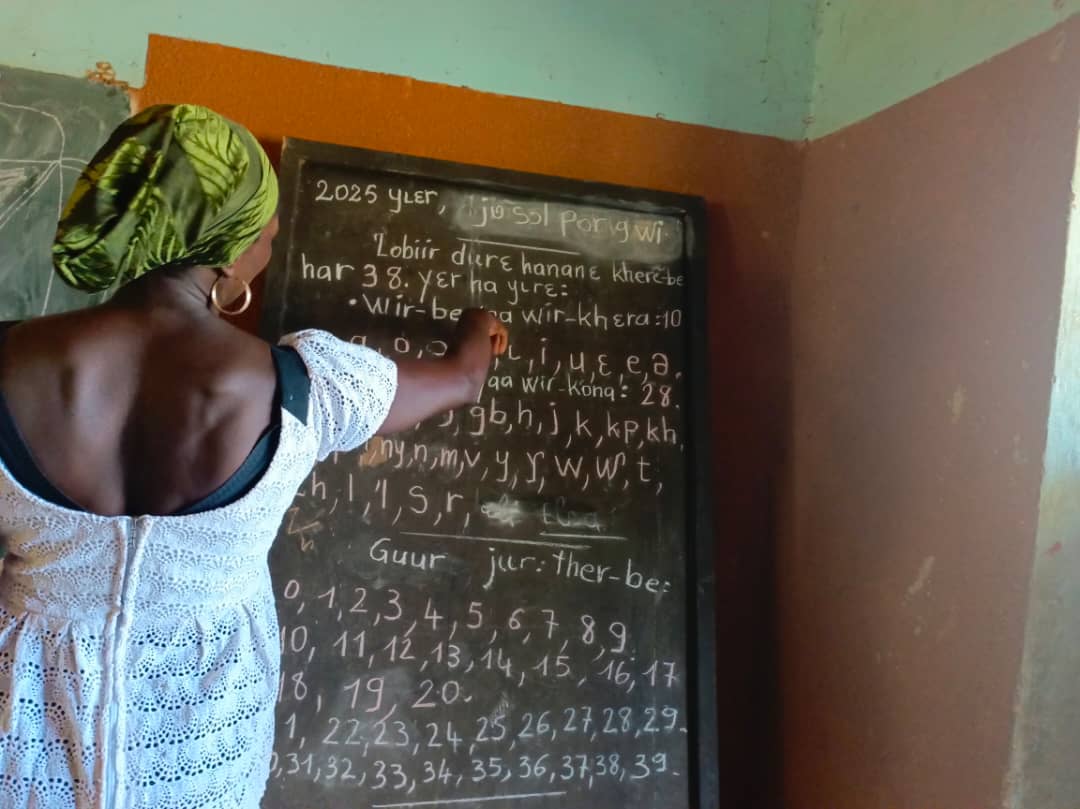 2025 yɩɛr, jʋsɔl porigwi
'Lobiir dɩɩrɛ hananɛ kherɛ-be
har 38. yɛr ha yɩrɛ:
• Wir-be wir-khɛra :10
ɩ, i, u, ɛ, e, ə.
yaa wir-kɔna: 28.
gb, h, j, k, kp, kh,
ny, n, m, v, y, ƴ, w, w', t,
h, l, 'l, s, r,
Guur jɩɩr: ther-be:
0, 1, 2, 3, 4, 5, 6, 7, 8, 9.
10, 11, 12, 13, 14, 15, 16, 17
18, 19, 20.
1, 22, 23, 24, 25, 26, 27, 28, 29.
, 31, 32, 33, 34, 35, 36, 37, 38, 39.